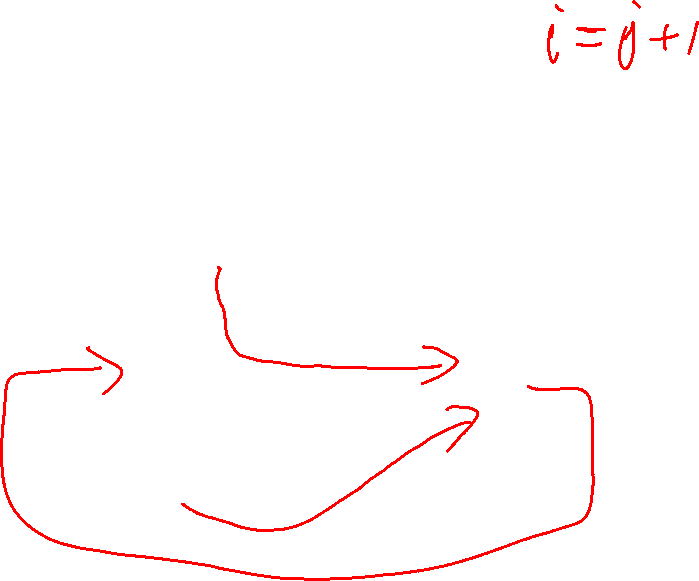 i = j + 1